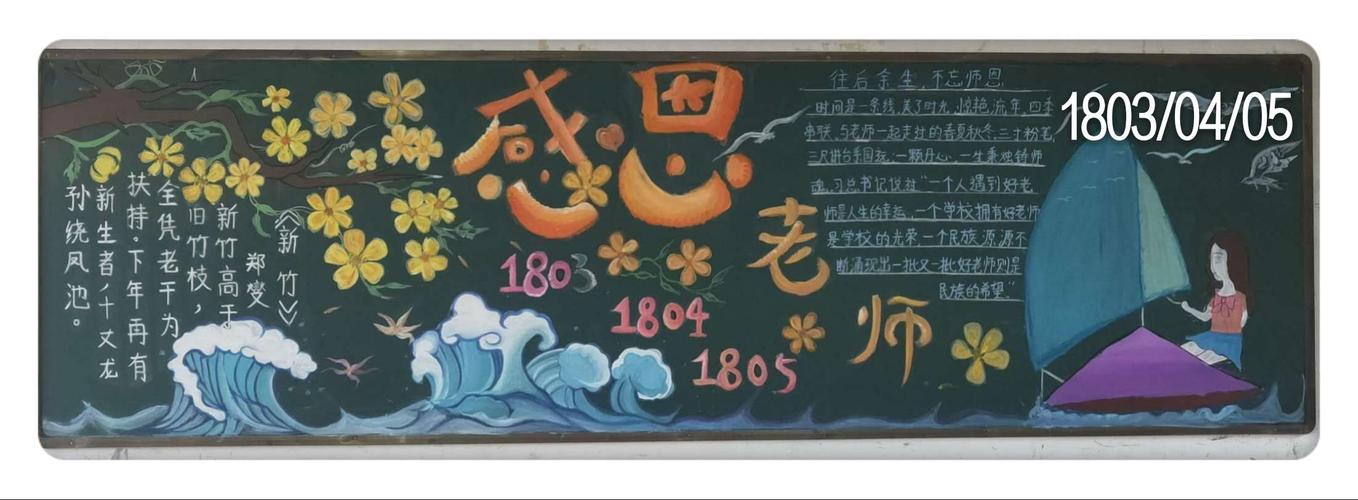 《新竹》
郑燮
新竹高于
旧竹枝，
全凭老干为
扶持。下年再有
新生者，十丈龙
孙绕凤池。
感恩
老师
1803
1804
1805
往后余生，不忘师恩
时间是一条线，美了时光，惊艳流年，四季
串联，与老师一起走过的春夏秋冬，三寸粉笔，
三尺讲台系国运，一颗丹心，一生秉烛铸师
魂，习总书记说过“一个人遇到好老
师是人生的幸运，一个学校拥有好老师
是学校的光荣，一个民族源源不
断涌现出一批又一批好老师则是
民族的希望。”
1803/04/05